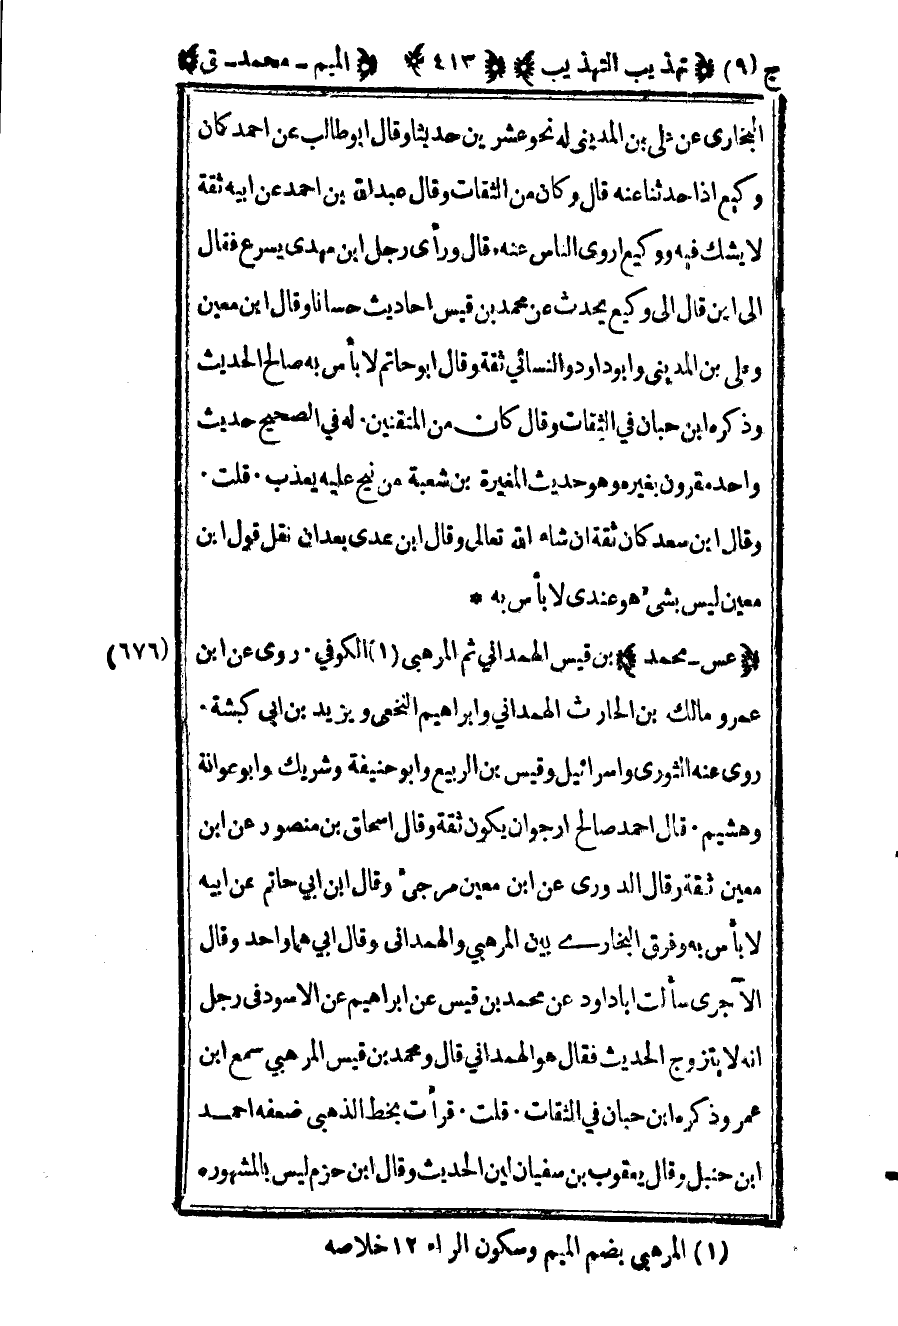 ج (٩) ﴿ تهذيب التهذيب ﴾ ﴿ ٤١٣ ﴾ ﴿ الميم - محمد - ق ﴾
البخارى عن على بن المدينى له نحو عشرين حديثا وقال ابو طالب عن احمد كان
وكيع اذا حدثنا عنه قال وكان من الثقات وقال عبد الله بن احمد عن ابيه ثقة
لا يشك فيه ووكيع اروى الناس عنه، قال ورأى رجل ابن مهدى يسرع فقال
الى اين قال الى وكيع يحدث عن محمد بن قيس احاديث حسانا وقال ابن معين
وعلى بن المدينى وابو داود والنسائي ثقة وقال ابو حاتم لا بأس به صالح الحديث
وذكره ابن حبان في الثقات وقال كان من المتقنين. له في الصحيح حديث
واحد مقرون بغيره وهو حديث المغيرة بن شعبة من نيح عليه يعذب. قلت.
وقال ابن سعد كان ثقة ان شاء الله تعالى وقال ابن عدى بعد ان نقل قول ابن
معين ليس بشىء هو عندى لا بأس به *
﴿ عس - محمد ﴾ بن قيس الهمداني ثم المرهبى (١) الكوفي. روى عن ابن (٦٧٦)
عمرو مالك بن الحارث الهمداني وابراهيم النخعى ويزيد بن ابى كبشة.
روى عنه الثورى واسرائيل وقيس بن الربيع وابو حنيفة وشريك وابو عوانة
وهشيم. قال احمد صالح ارجو ان يكون ثقة وقال اسحاق بن منصور عن ابن
معين ثقة وقال الدورى عن ابن معين مرجىء وقال ابن ابي حاتم عن ابيه
لا بأس به وفرق البخارے بين المرهبي والهمدانى وقال ابي هما واحد وقال
الآجرى سألت ابا داود عن محمد بن قيس عن ابراهيم عن الاسود فى رجل
انه لا يتزوج الحديث فقال هو الهمداني قال ومحمد بن قيس المرهبي سمع ابن
عمر وذكره ابن حبان في الثقات. قلت. قرأت بخط الذهبى ضعفه احمد
ابن حنبل وقال يعقوب بن سفيان لين الحديث وقال ابن حزم ليس بالمشهور.
(١) المرهبى بضم الميم وسكون الراء ١٢ خلاصه